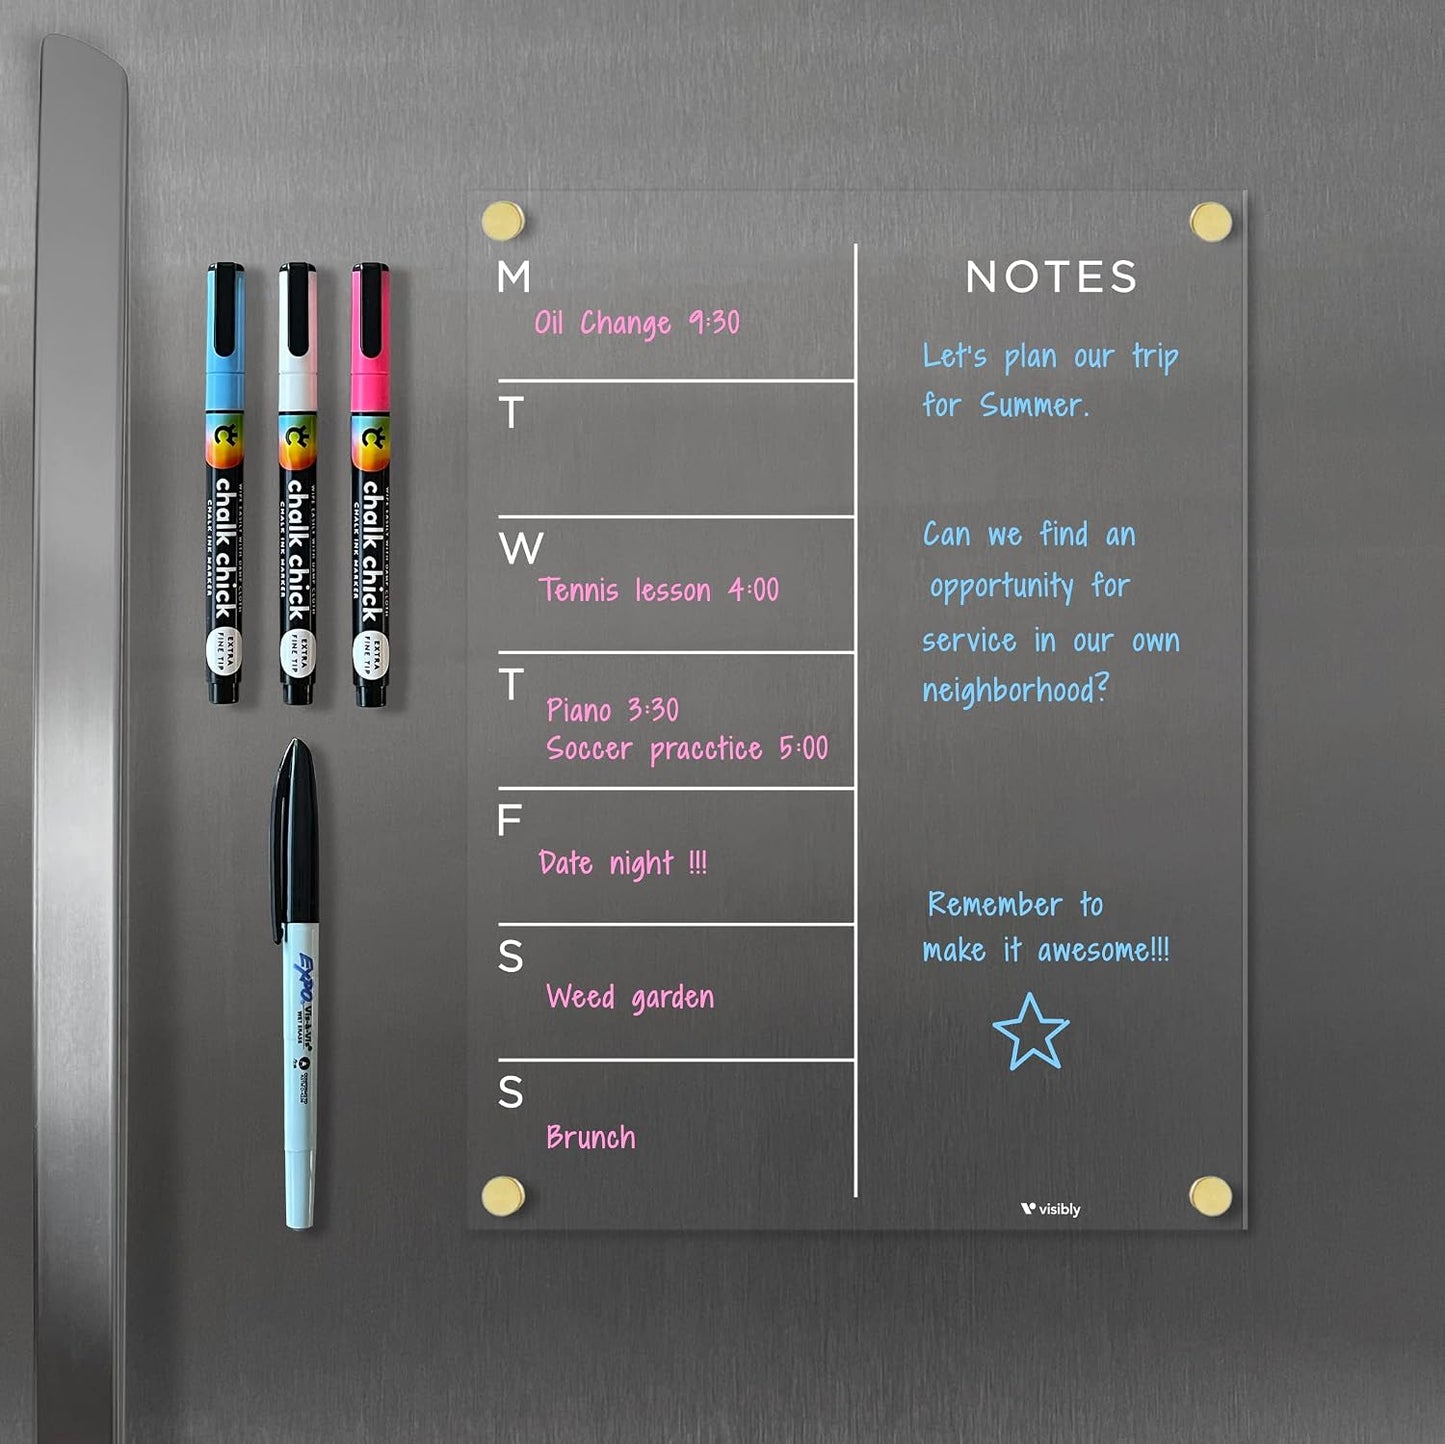 M
Oil Change 9:30
T
W
Tennis lesson 4:00
T
Piano 3:30
Soccer pracctice 5:00
F
Date night !!!
S
Weed garden
S
Brunch
NOTES
Let's plan our trip
for Summer.
Can we find an
opportunity for
service in our own
neighborhood?
Remember to
make it awesome!!!
visibly
chalk chick
CHALK INK MARKER
EXTRA
FINE TIP
chalk chick
CHALK INK MARKER
EXTRA
FINE TIP
chalk chick
CHALK INK MARKER
EXTRA
FINE TIP
EXPO Vis-à-Vis
WET ERASE